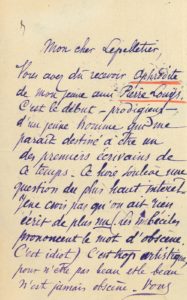 Mon cher Lepelletier,
Vous avez dû recevoir Aphrodite
de mon jeune ami Pierre Louÿs
C'est le début – prodigieux –
d'un jeune homme qui me
paraît destiné à être un
des premiers écrivains de
ce temps. Ce livre soulève une
question du plus haut intérêt.
Je ne crois pas qu'on ait rien
écrit de plus nu. Les imbéciles
prononcent le mot d'obscène.
C'est idiot! C'est trop artistique
pour n'être pas beau et le beau
n'est jamais obscène. Vous